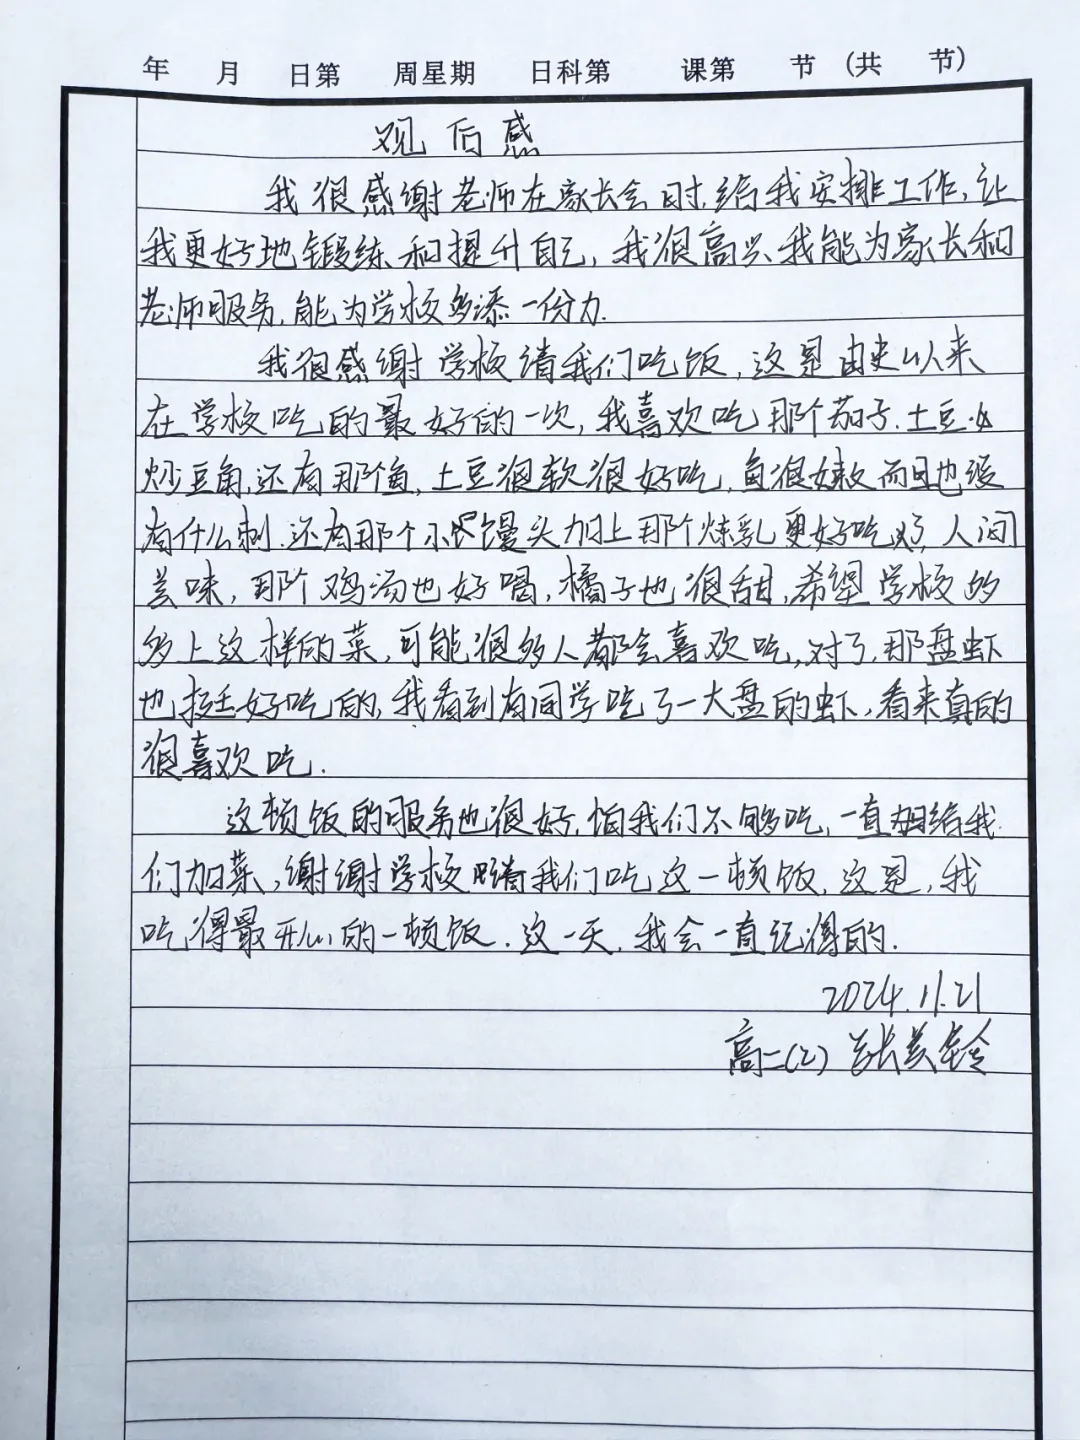 年 月 日第 周星期 日科第 课第 节 (共 节)
观后感
我很感谢老师在家长会时,给我安排工作,让
我更好地锻练和提升自己,我很高兴我能为家长和
老师服务,能为学校多添一份力.
我很感谢学校请我们吃饭,这是由史以来
在学校吃的最好的一次,我喜欢吃那个茄子.土豆
炒豆角,还有那个鱼,土豆很软很好吃,鱼很嫩而且也没
有什么刺.还有那个小馒头加上那个炼乳更好吃,人间
美味,那个鸡汤也好喝,橘子也很甜,希望学校的
多上这样的菜,可能很多人都会喜欢吃,对了,那盘虾
也挺好吃的,我看到有同学吃了一大盘的虾,看来真的
很喜欢吃.
这顿饭的服务也很好,怕我们不够吃,一直给我
们加菜,谢谢学校请我们吃这一顿饭,这是,我
吃得最开心的一顿饭.这一天,我会一直记得的.
2024.11.21
高二(2) 张美铃